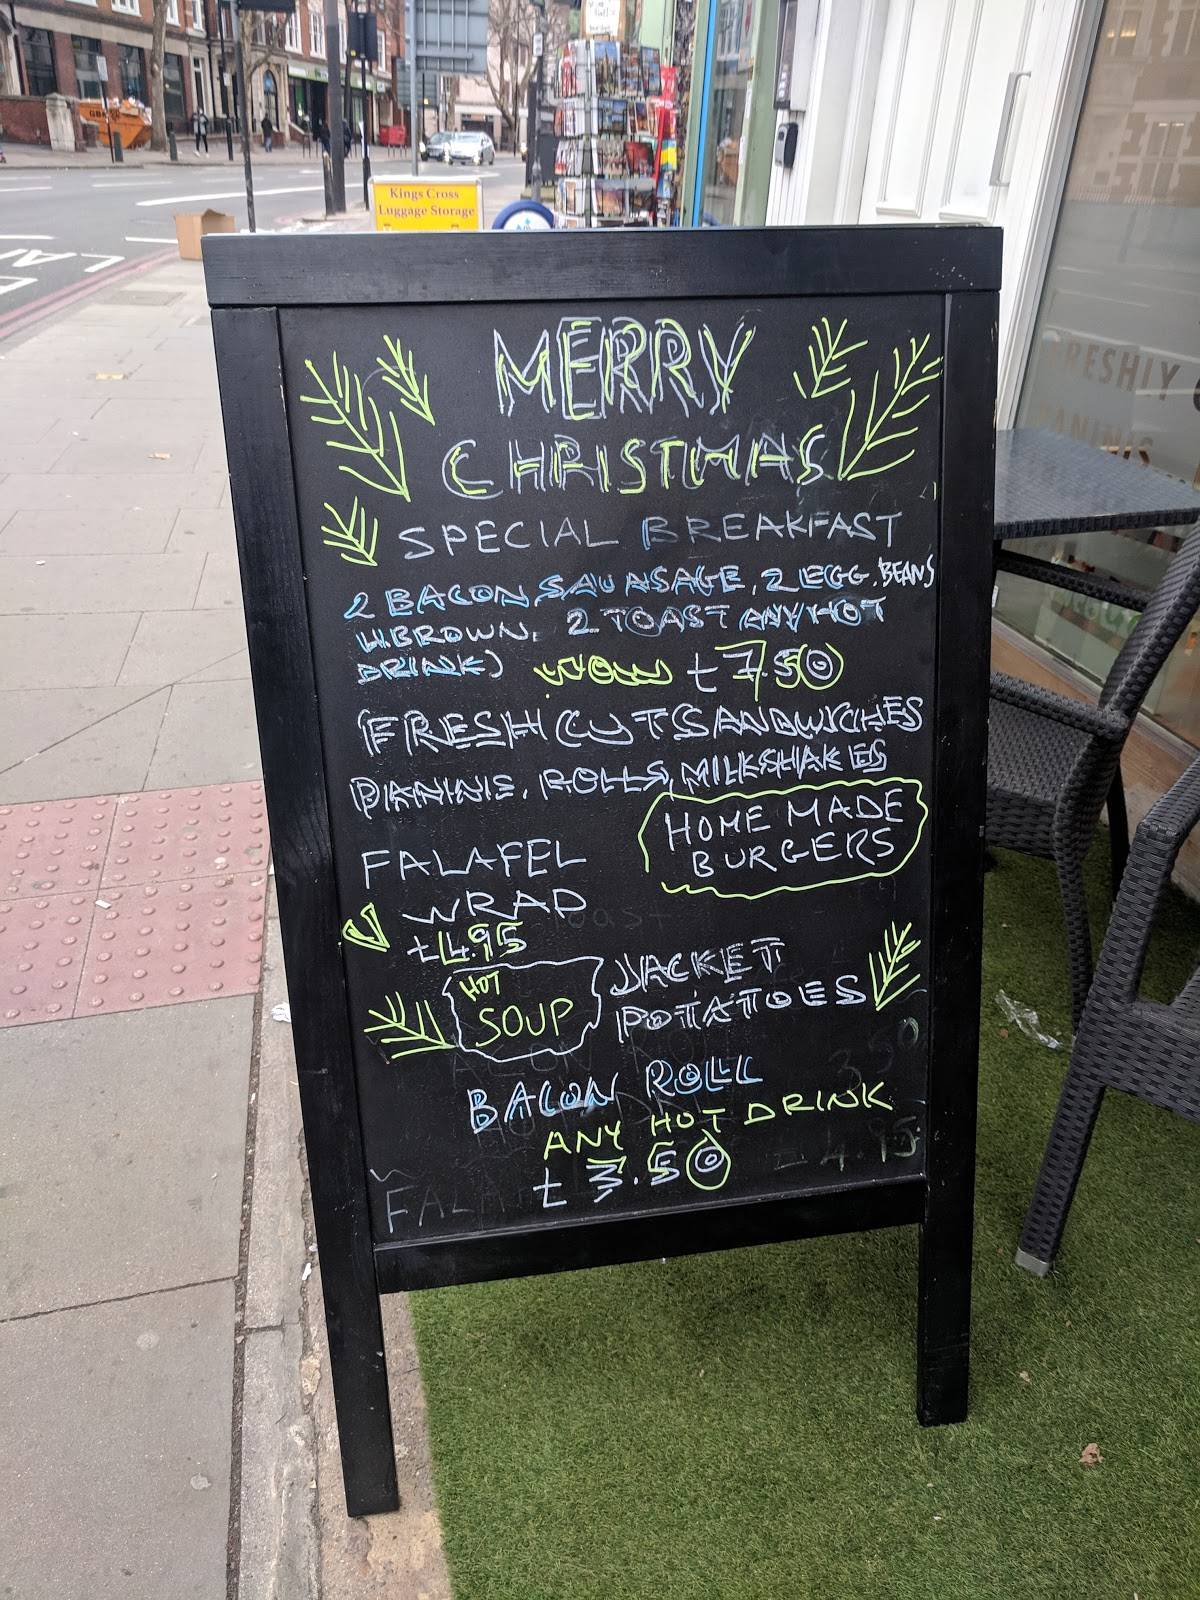 Kings Cross
Luggage Storage
MERRY
CHRISTMAS
SPECIAL BREAKFAST
2 BACON, SAUNSAGE, 2 EGG, BEANS
H.BROWN, 2 TOAST ANY HOT
DRINK) WOW £7.50
FRESH CUT SANDWICHES
PANINIS, ROLLS, MILKSHAKES
HOME MADE
BURGERS
FALAFEL
WRAD
V £4.95
HOT
SOUP
JACKET
POTATOES
BACON ROLL
ANY HOT DRINK
£3.50